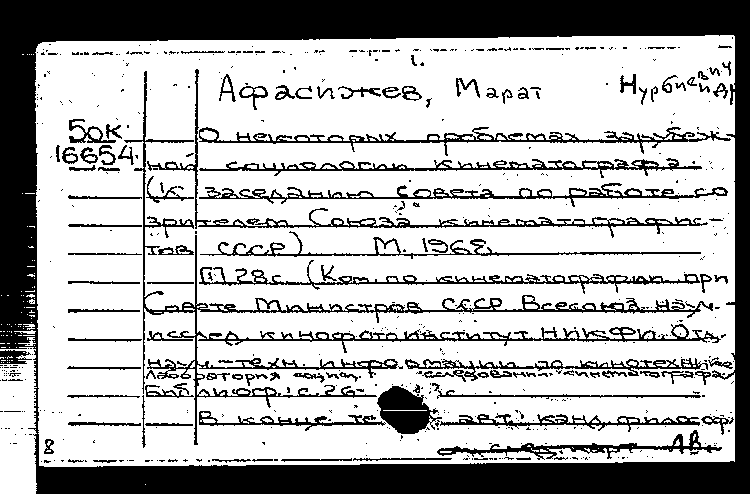 1.
Афасижев, Марат Нурбиевич
50к О некоторых проблемах зарубеж-
16654. ной социологии кинематографа.
(К заседанию Совета по работе со
зрителем Союза кинематографис-
тов СССР) М., 1968.
28с. (Ком. по кинематографии при
Совете Министров СССР. Всесоюз. науч.-
исслед. кинофотоинститут НИКФИ. Отд.
науч.-техн. информации по кинотехнике)
Лаборатория социол. исследований кинематографа
Библиогр.: с. 26-
В конце авт.: канд. философ
8 ЛВ.